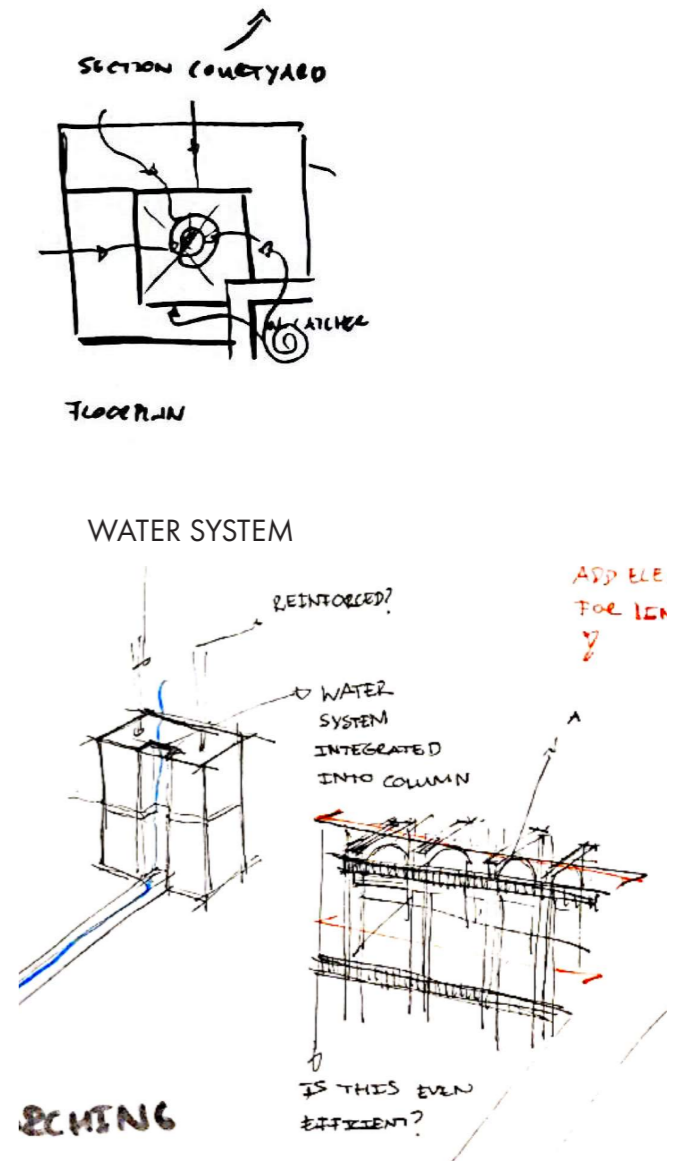 SECTION COURTYARD
CATCHER
FLOORPLAN
WATER SYSTEM
ADD ELE
REINFORCED?
FOR
WATER
SYSTEM
INTEGRATED
INTO COLUMN
A
IS THIS EVEN
EFFICIENT?
RCHING